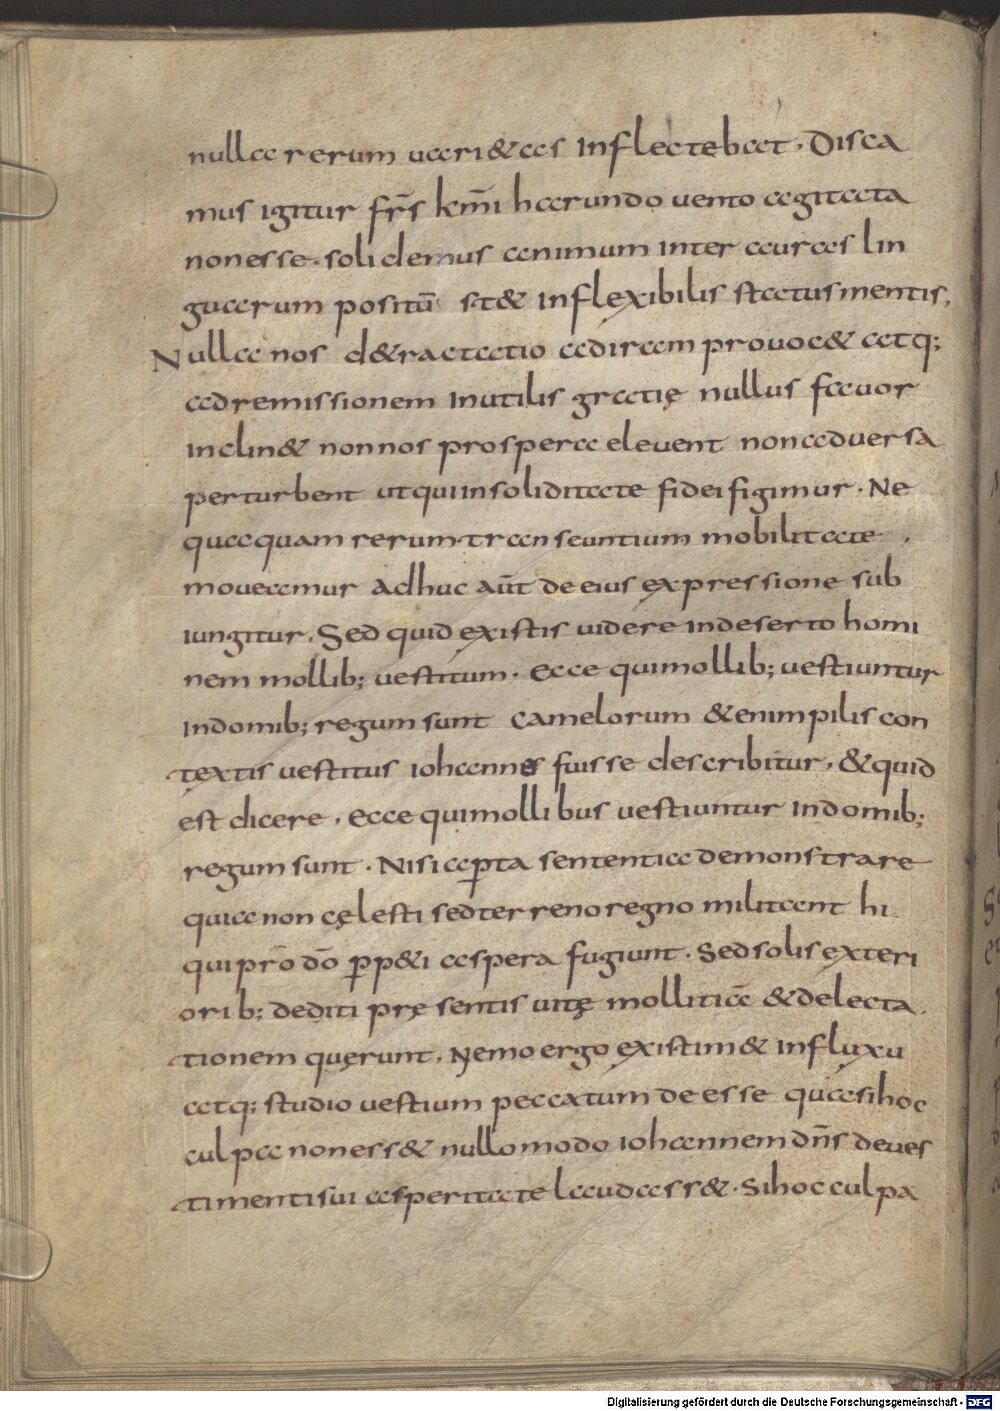 nulla rerum uari&as inflectebat. Disca
mus igitur fr̄s km̄i harundo uento agitata
non esse. solidemus animum inter auras lin
guarum positū st& inflexibilis status mentis,
Nulla nos d&ractatio ad iram prouoc& atq;
ad remissionem inutilis gratię nullus fauor
inclin& non nos prospera eleuent non aduersa
perturbent ut qui in soliditate fidei figimur. Ne
quaquam rerum transeuntium mobilitate
moueamur adhuc aūt de eius expressione sub
iungitur. Sed quid existis uidere in deserto homi
nem mollib; uestitum. Ecce qui mollib; uestiuntur
in domib; regum sunt Camelorum &enim pilis con
textis uestitus iohannes fuisse describitur. & quid
est dicere. Ecce qui mollibus uestiuntur in domib;
regum sunt. Nisi aperta sententia demonstrare
quia non cęlesti sed terreno regno militant hi
qui pro dō perp&i aspera fugiunt. Sed solis exteri
orib; dediti pręsentis uitę mollitiā & delecta
tionem quęrunt. Nemo ergo existim& in fluxu
atq; studio uestium peccatum deesse quia si hoc
culpa non ess& nullo modo iohannem dn̄s de ues
timenti sui asperitate laudass&. Si hoc culpa
Digitalisierung gefördert durch die Deutsche Forschungsgemeinschaft - DFG